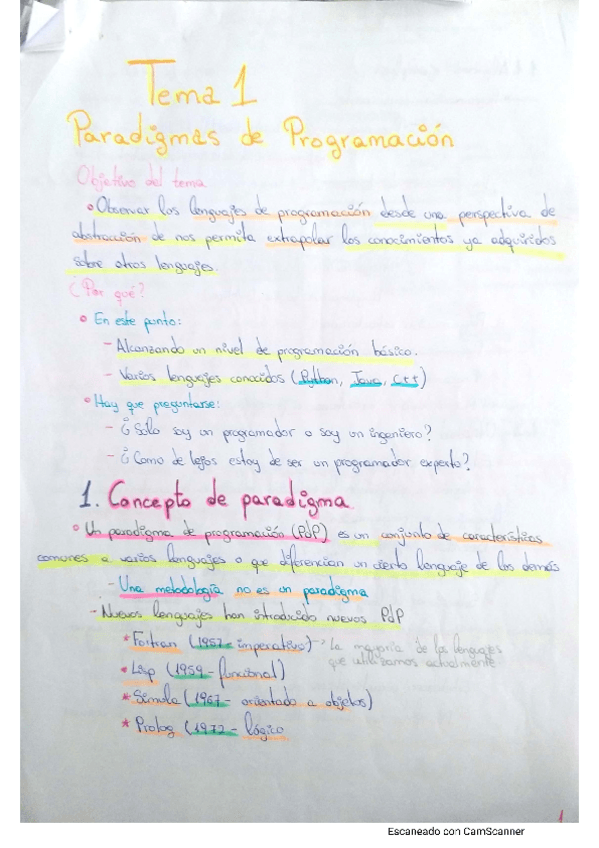 Tema 1
Paradigmas de Programación
Objetivo del tema
• Observar los lenguajes de programación desde una perspectiva de
abstracción de nos permita extrapolar los conocimientos ya adquiridos
sobre otros lenguajes.
¿Por qué?
• En este punto:
- Alcanzando un nivel de programación básico.
- Varios lenguajes conocidos (Python, Java, C++)
• Hay que preguntarse:
- ¿Sólo soy un programador o soy un ingeniero?
- ¿Como de lejos estoy de ser un programador experto?
1. Concepto de paradigma
• Un paradigma de programación (PdP) es un conjunto de características
comunes a varios lenguajes o que diferencian un cierto lenguaje de los demás
- Una metodología no es un paradigma
- Nuevos lenguajes han introducido nuevos PdP
* Fortran (1957 - imperativo) -> la mayoría de los lenguajes
que utilizamos actualmente.
* Lisp (1959 - funcional)
* Simula (1967 - orientado a objetos)
* Prolog (1972 - lógico
1
Escaneado con CamScanner